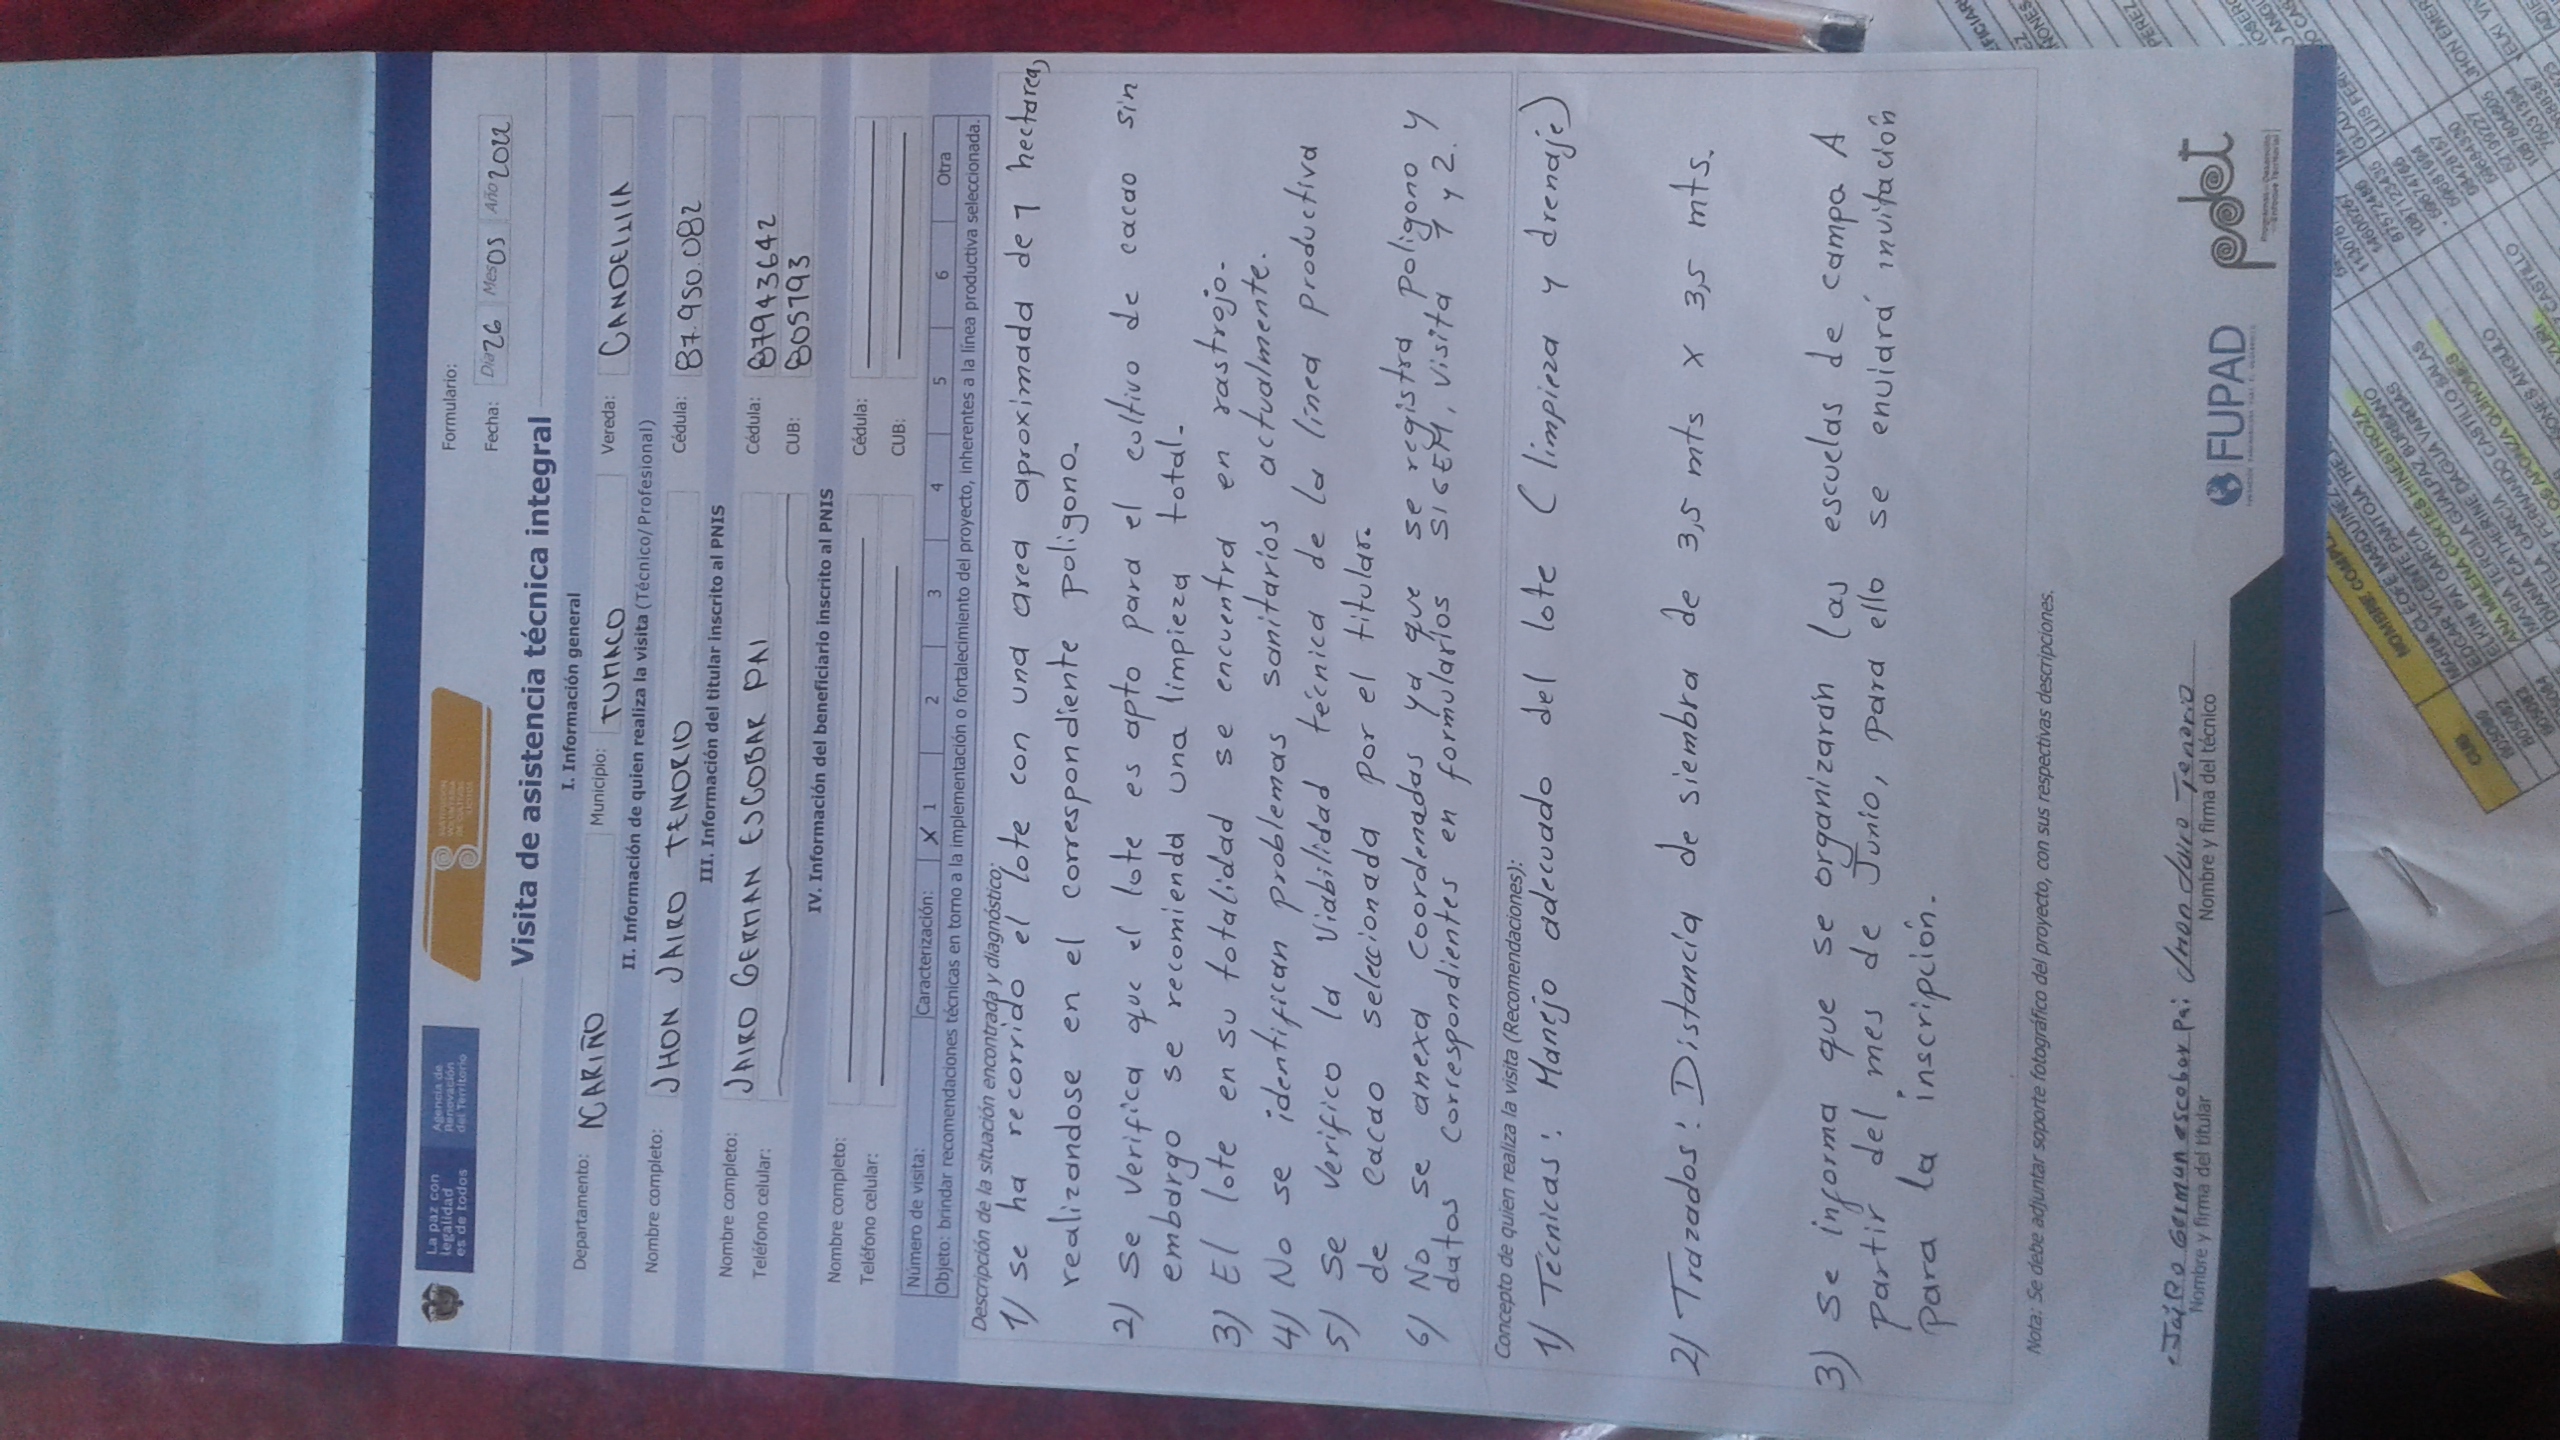 La paz con
legalidad
es de todos
Agencia de
Renovación
del Territorio
Formulario:
Fecha: Día 26 Mes 05 Año 2022
Visita de asistencia técnica integral
I. Información general
Departamento: NARIÑO Municipio: TUMACO Vereda: CANDELILLA
II. Información de quien realiza la visita (Técnico/Profesional)
Nombre completo: JHON JAIRO TENORIO Cédula: 87.950.082
III. Información del titular inscrito al PNIS
Nombre completo: JAIRO GERMAN ESCOBAR PAI Cédula: 87943642
Teléfono celular: CUB: 805793
IV. Información del beneficiario inscrito al PNIS
Nombre completo: Cédula:
Teléfono celular: CUB:
Número de visita: Caracterización: X 1 2 3 4 5 6 Otra
Objeto: brindar recomendaciones técnicas en torno a la implementación o fortalecimiento del proyecto, inherentes a la línea productiva seleccionada.
Descripción de la situación encontrada y diagnóstico:
1) se ha recorrido el lote con una area aproximada de 1 hectarea,
realizandose en el correspondiente poligono.
2) se verifica que el lote es apto para el cultivo de cacao sin
embargo se recomienda una limpieza total.
3) El lote en su totalidad se encuentra en rastrojo.
4) No se identifican problemas sanitarios actualmente.
5) se verifico la viabilidad técnica de la línea productiva
de cacao seleccionada por el titular.
6) No se anexa coordenadas ya que se registra poligono y
datos correspondientes en formularios SIGEM, visita 1 y 2.
Concepto de quien realiza la visita (Recomendaciones):
1) Técnicas: Manejo adecuado del lote (limpieza y drenaje)
2) Trazados: Distancia de siembra de 3,5 mts x 3,5 mts.
3) Se informa que se organizarán las escuelas de campo A
partir del mes de Junio, para ello se enviará invitación
para la inscripción.
Nota: Se debe adjuntar soporte fotográfico del proyecto, con sus respectivas descripciones.
JaiRo German escobar Pai Jhon Jairo Tenorio
Nombre y firma del titular Nombre y firma del técnico
FUPAD
pdet